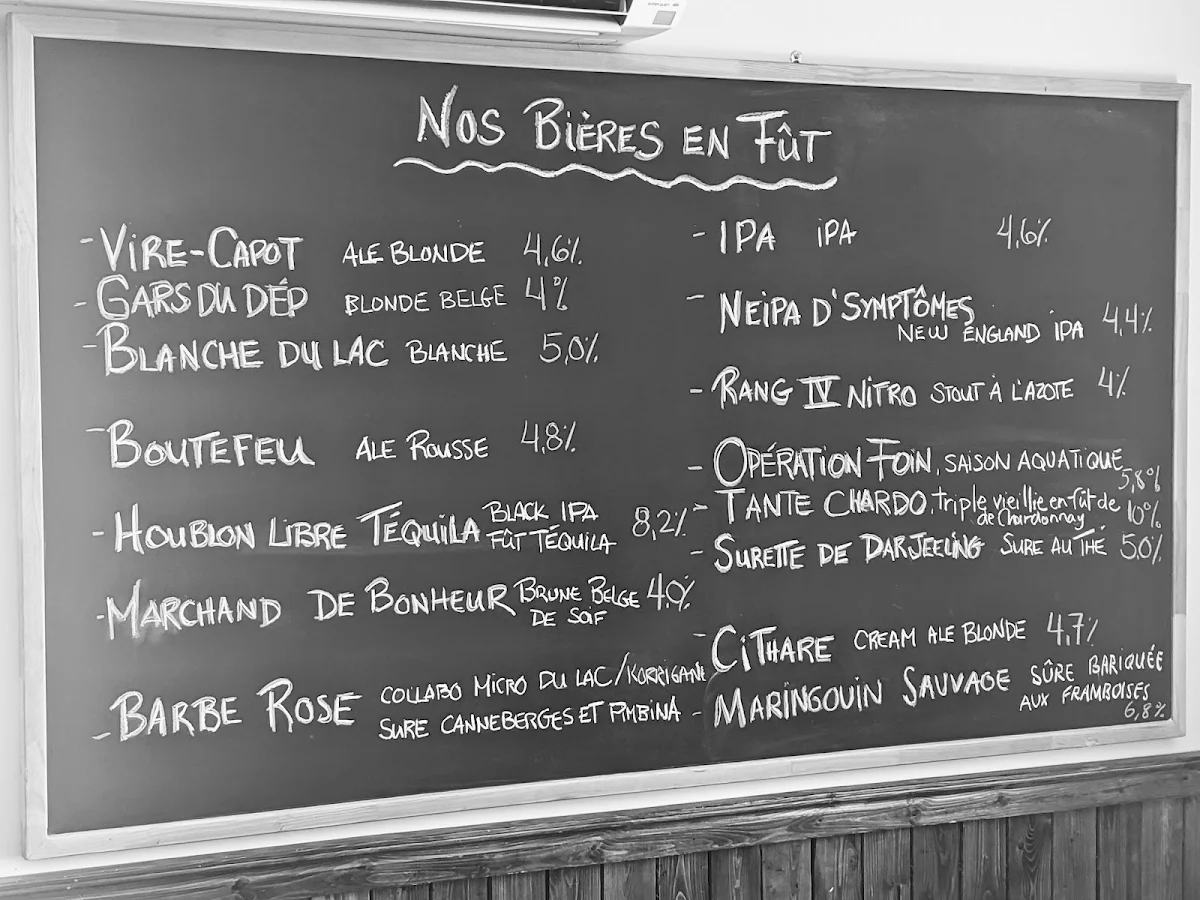 Nos Bières en Fût
- Vire-Capot Ale Blonde 4,6%
- Gars du Dép Blonde Belge 4%
- Blanche du Lac Blanche 5,0%
- Boutefeu Ale Rousse 4,8%
- Houblon Libre Téquila Black IPA
Fût Téquila 8,2%
- Marchand de Bonheur Brune Belge 4.0%
de Soif
- Barbe Rose Collabo Micro du Lac/Korrigane
Sure Canneberges et Pimbina
- IPA iPA 4,6%
- Neipa d'Symptômes
New England iPA 4,4%
- Rang IV Nitro Stout à l'azote 4%
- Opération Foin, saison aquatique
5,8%
- Tante Chardo, triple vieillie en fût de
de Chardonnay 10%
- Surette de Darjeeling Sure au Thé 5,0%
- Cithare Cream Ale Blonde 4,7%
- Maringouin Sauvage Sûre Bariquée
aux Framboises
6,8%